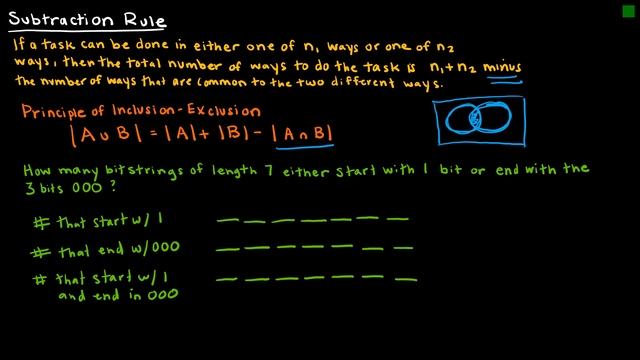 Subtraction Rule
If a task can be done in either one of n₁ ways or one of n₂
ways, then the total number of ways to do the task is n₁+n₂ minus
the number of ways that are common to the two different ways.
Principle of Inclusion-Exclusion
|A∪B| = |A|+ |B| - |A∩B|
How many bitstrings of length 7 either start with 1 bit or end with the
3 bits 000?
# that start w/ 1
# that end w/000
# that start w/1
and end in 000